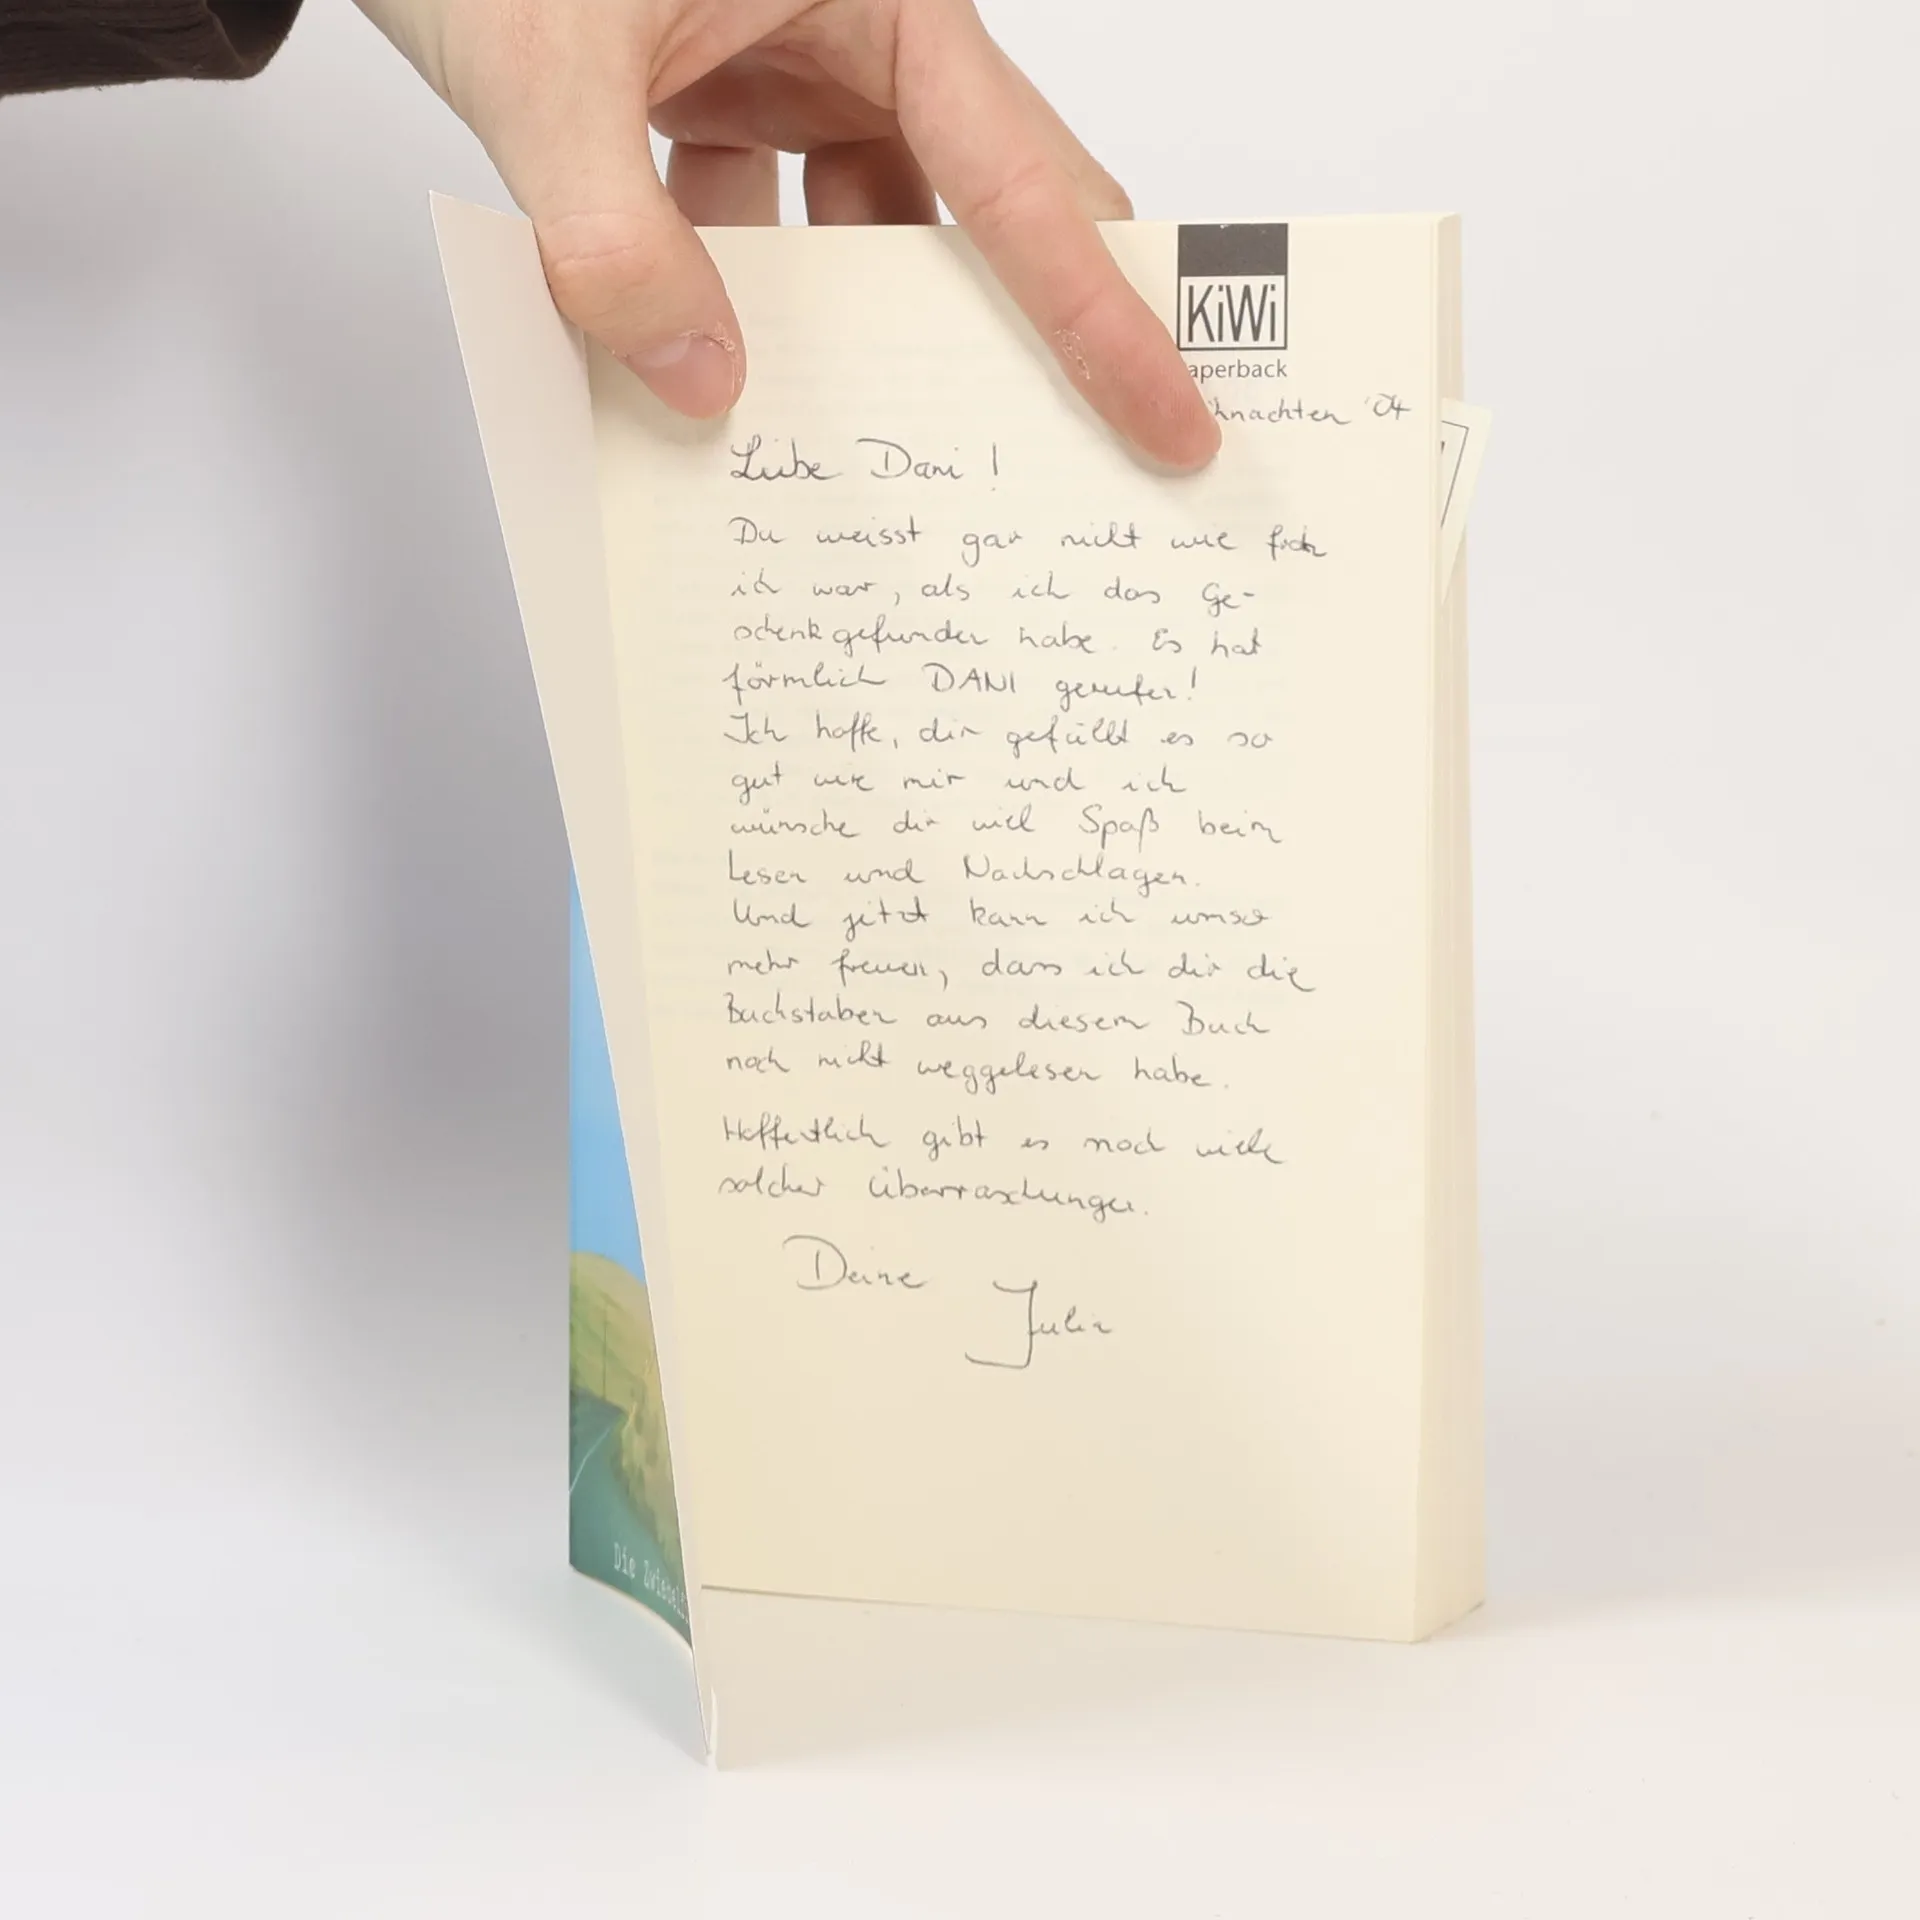 KiWi
aperback
hnachten '04
Liebe Dani!
Du weisst gar nicht wie froh
ich war, als ich das Ge-
schenk gefunden habe. Es hat
förmlich DANI gerufen!
Ich hoffe, dir gefällt es so
gut wie mir und ich
wünsche dir viel Spaß beim
Lesen und Nachschlagen.
Und jetzt kann ich umso
mehr freuen, dass ich dir die
Buchstaben aus diesem Buch
noch nicht weggelesen habe.
Hoffentlich gibt es noch viele
solcher Überraschungen.
Deine
Julia
Die Zwiebels